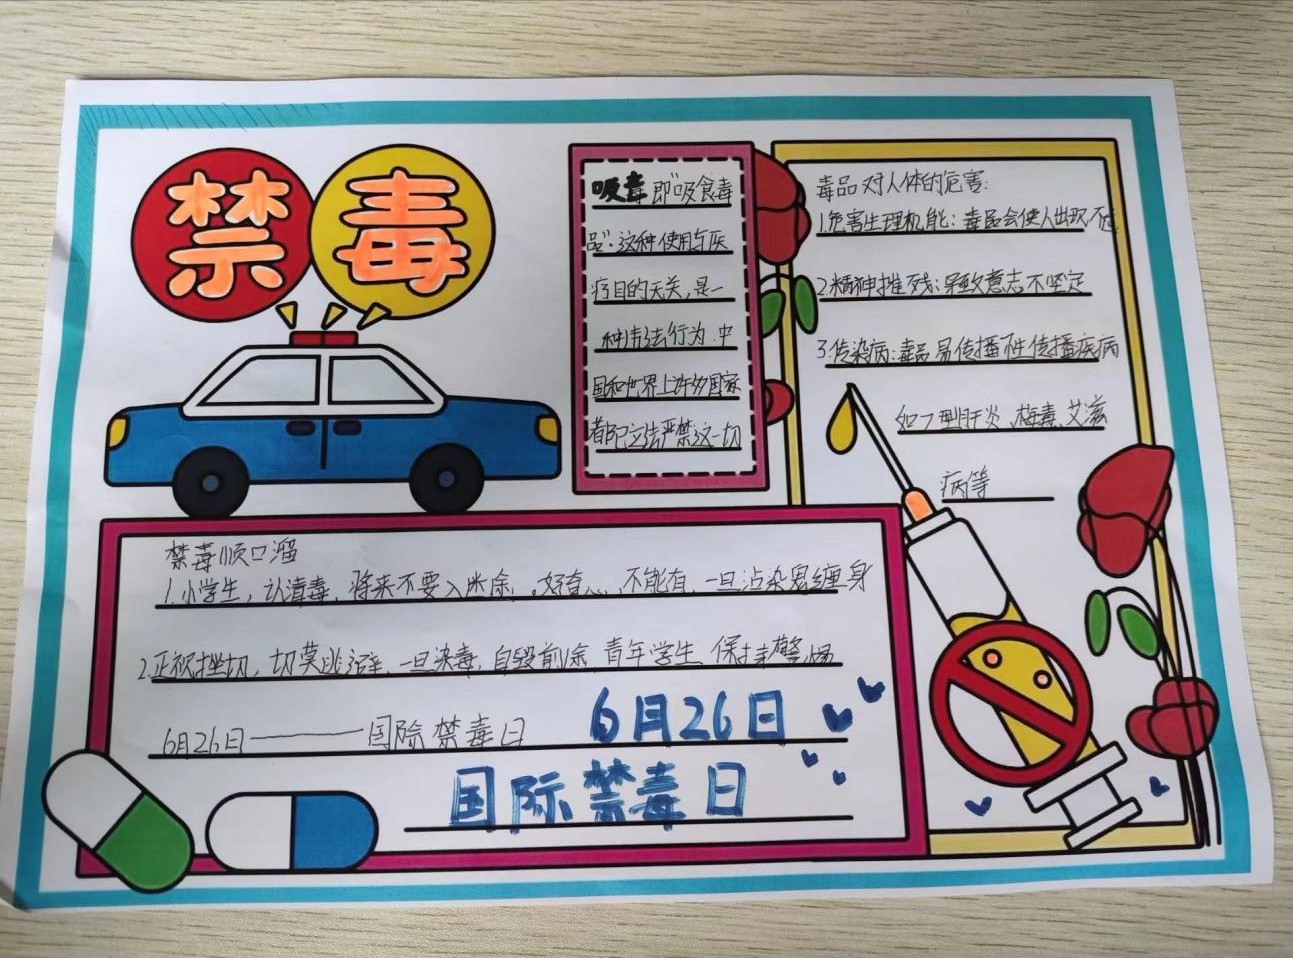 禁毒
吸毒即“吸食毒
品”:这种使用与医
疗目的无关,是一
种违法行为.中
国和世界上许多国家
都已立法严禁这一切
毒品对人体的危害:
1.危害生理机能:毒品会使人出现不适
2.精神摧残:导致意志不坚定
3.传染病:毒品易传播性传播疾病
如丁型肝炎、梅毒、艾滋
病等
禁毒顺口溜
1.小学生,认清毒,将来不要入迷途,好奇心,不能有,一旦沾染累缠身
2.正视挫切,切莫逃避,一旦染毒,自毁前途,青年学生,保持警惕
6月26日——国际禁毒日
6月26日
国际禁毒日